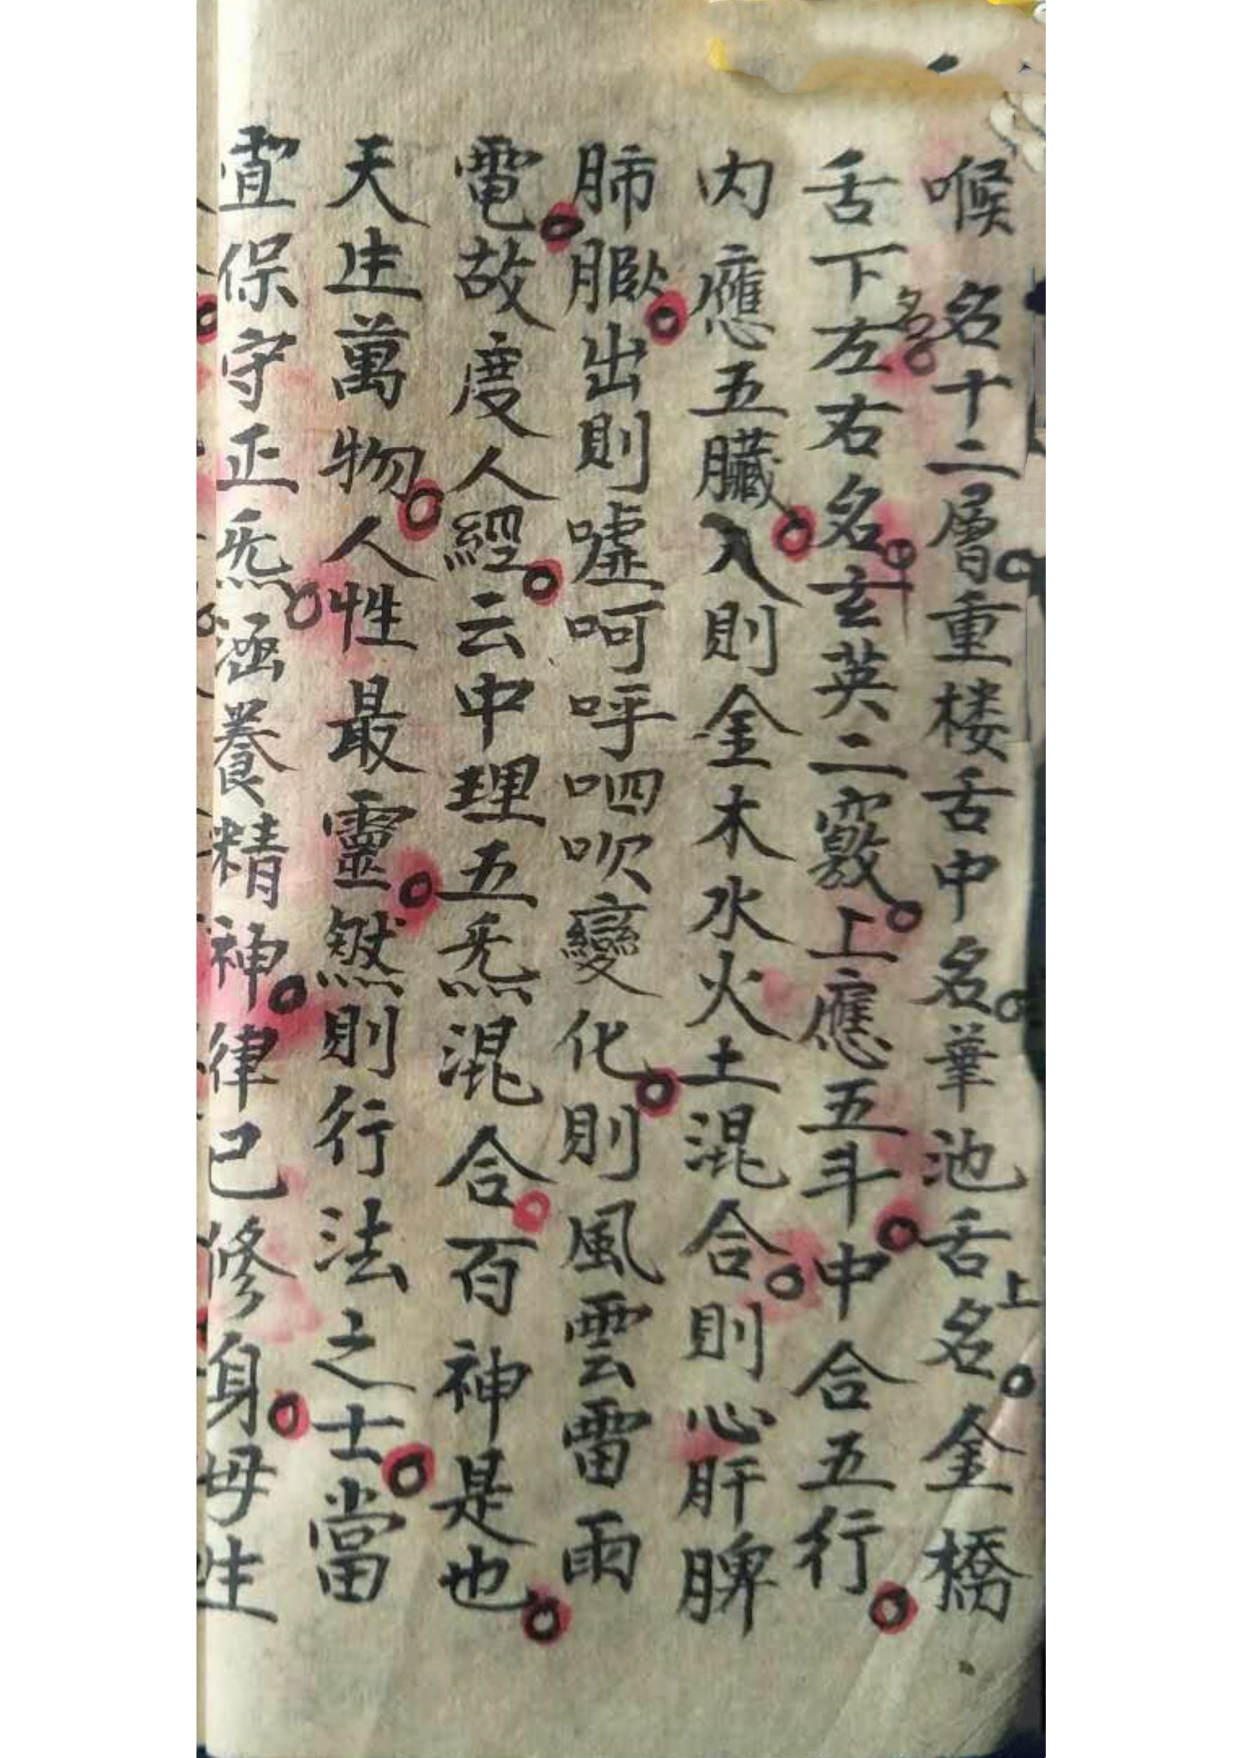 喉名十二層。重楼舌中名。華池舌上名。金橋
舌下左右名。玄英二竅。上應五斗。中合五行。
内應五臟。入則金木水火土混合。則心肝脾
肺。出則噓呵呼呬吹變化。則風雲雷雨
電。故度人經。云中理五炁混合。百神是也。
天生萬物。人性最靈。然則行法之士。當
宜保守正炁。涵養精神。律己修身。毋生